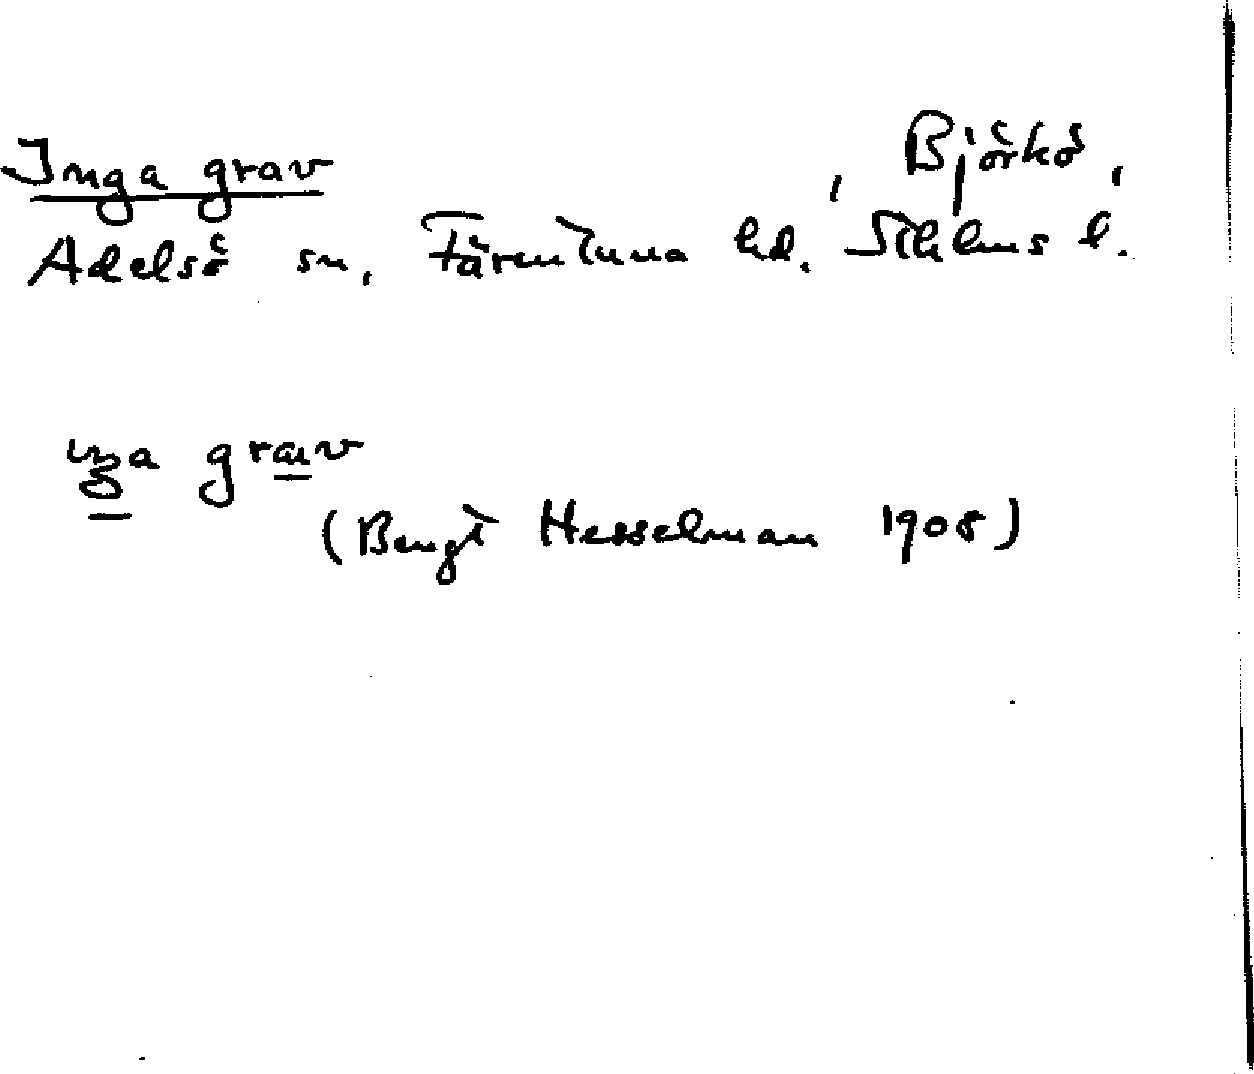 Inga grav , Björkö,
Adelsö sn, Färentuna hd. Sthlms l.
grav
(Bengt Hesselman 1908)